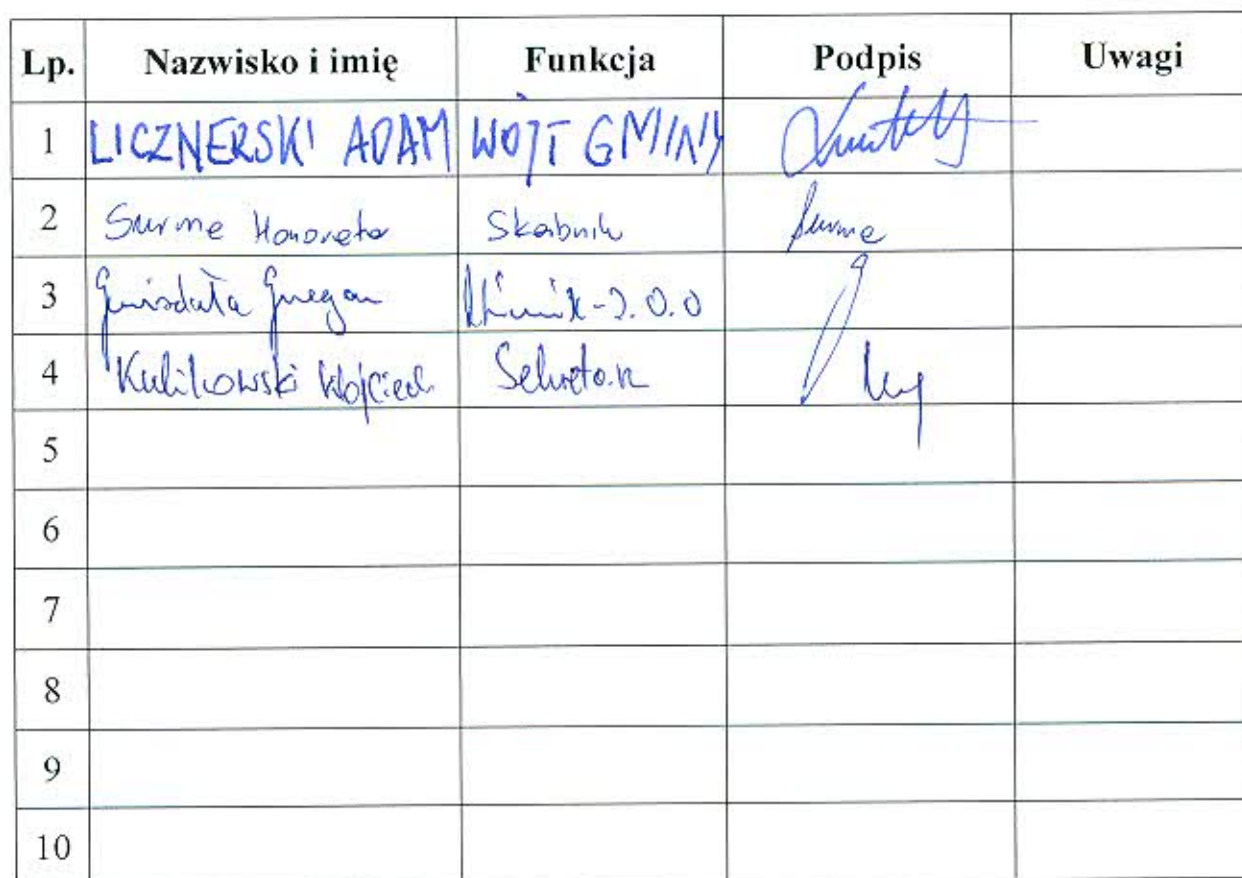 Lp. Nazwisko i imię Funkcja Podpis Uwagi
1 LICZNERSKI ADAM WÓJT GMINY
2 Surma Honorata Skarbnik Surma
3
4 Kulikowski Wojciech Sekretarz
5
6
7
8
9
10